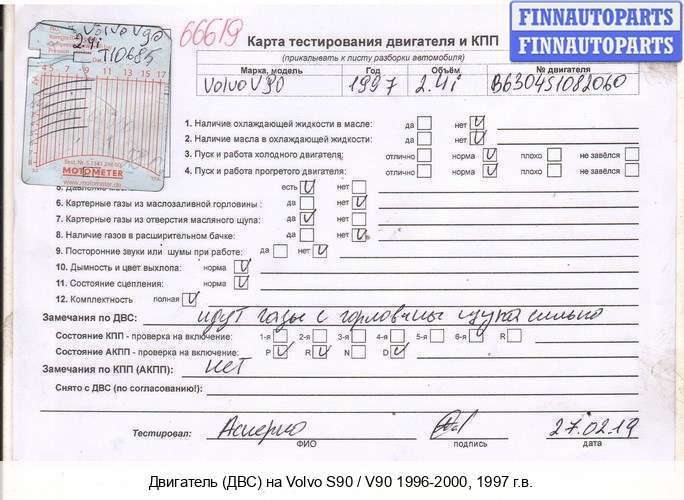 66619
FINNAUTOPARTS
FINNAUTOPARTS
Volvo V90
2.4i
T10685
5 7 9 11 13 15 17
MOTOMETER
www.motometer.de
Карта тестирования двигателя и КПП
(прикалывать к листу разборки автомобиля)
Марка, модель Год Объём № двигателя
Volvo V90 1997 2.4i B6304S1082060
1. Наличие охлаждающей жидкости в масле: да нет V
2. Наличие масла в охлаждающей жидкости: да нет V
3. Пуск и работа холодного двигателя: отлично норма V плохо не завёлся
4. Пуск и работа прогретого двигателя: отлично норма V плохо не завёлся
есть V нет
6. Картерные газы из маслозаливной горловины : да нет V
7. Картерные газы из отверстия масляного щупа: да V нет
8. Наличие газов в расширительном бачке: да нет V
9. Посторонние звуки или шумы при работе: да нет V
10. Дымность и цвет выхлопа: норма V
11. Состояние сцепления: норма V
12. Комплектность полная V
Замечания по ДВС: идут газы с горловины щупа сильно
Состояние КПП - проверка на включение: 1-я 2-я 3-я 4-я 5-я 6-я R
Состояние АКПП - проверка на включение: P V R V N D V
Замечания по КПП (АКПП): нет
Снято с ДВС (по согласованию!):
Тестировал: 27.02.19
ФИО подпись дата
Двигатель (ДВС) на Volvo S90 / V90 1996-2000, 1997 г.в.